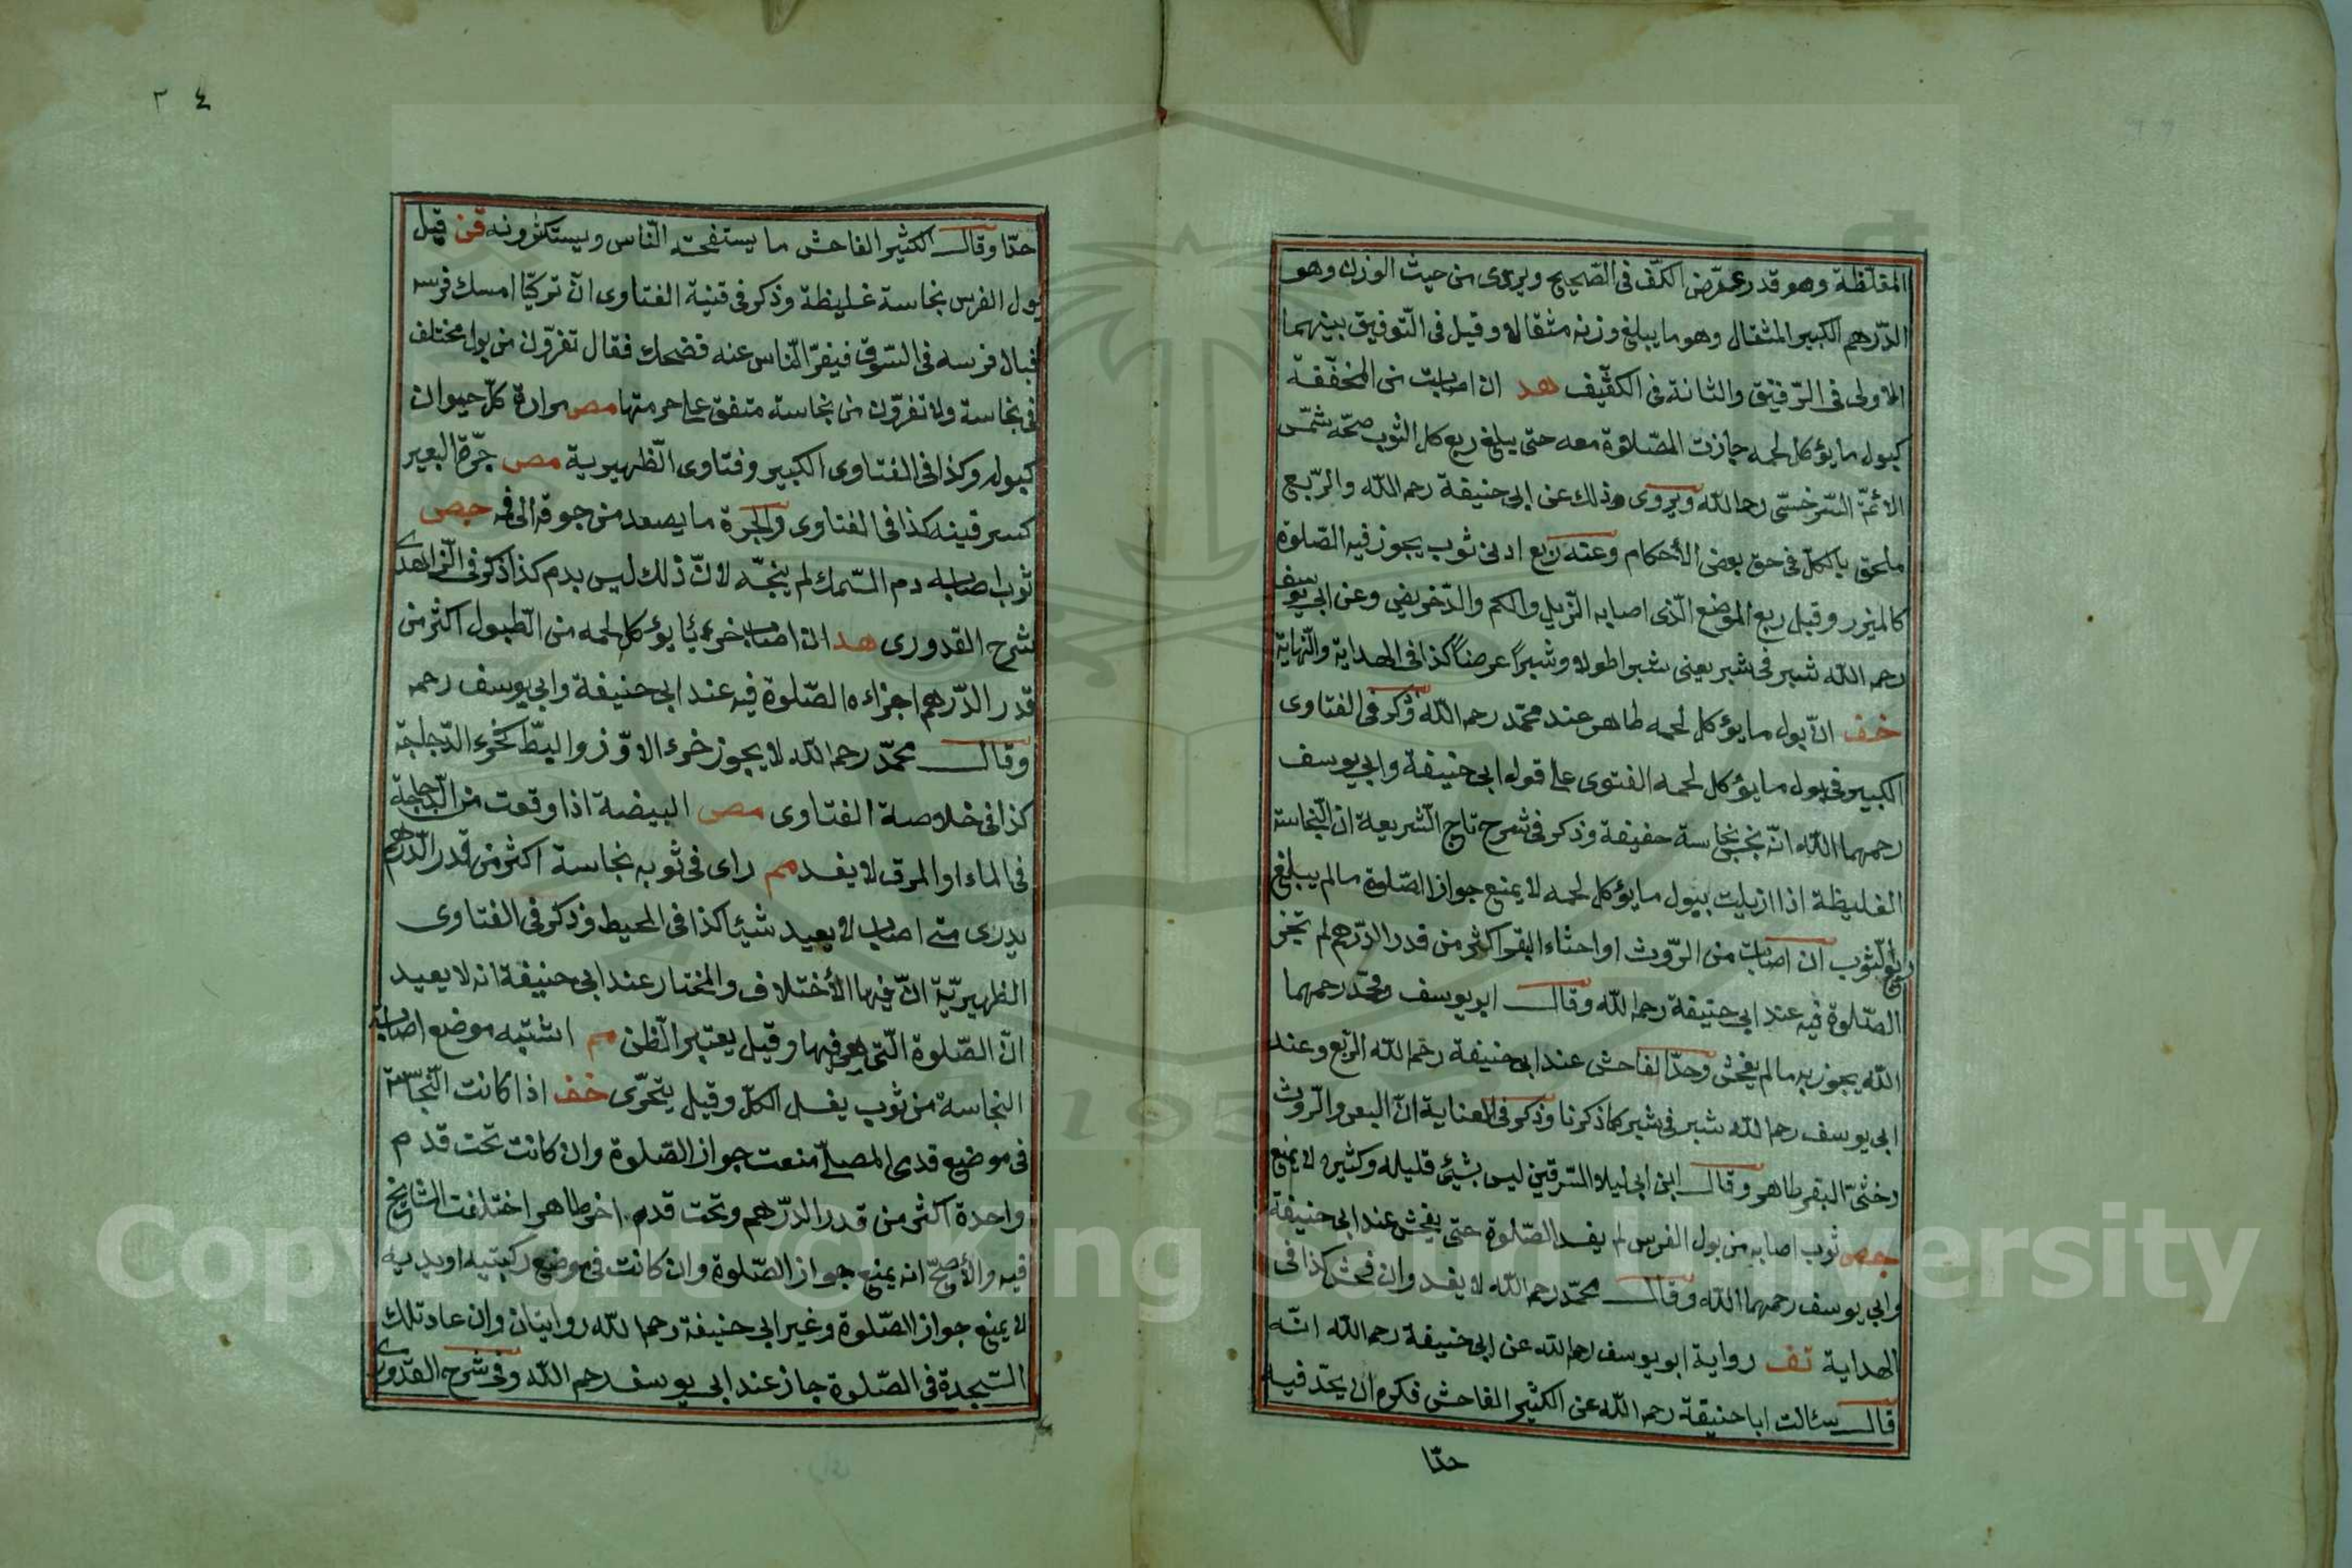 المغلّظة وهو قدر عرض الكفّ فى الصّحيح ويروى من حيث الوزن وهو
الدّرهم الكبير المثقال وهو ما يبلغ وزنه مثقالا وقيل فى التّوفيق بينهما
الاولى فى الرّقيق والثانة فى الكثّيف هد ان اصابت من المخفّفة
كبول ما يؤكل لحمه جازت الصّلوة معه حتى يبلغ ربع كل الثوب صحّه شمس
الائمّة السّرخسىّ رحمالله ويروى ذلك عن ابى حنيفة رحم الله والرّبع
ملحق بالكلّ فى حق بعض الأحكام وعنه ربع ادنى ثوب يجوز فيه الصّلوة
كالميزر وقيل ربع الموضع الّذى اصابه الزّيل والكم والدّخريص وعن ابى يوسف
رحم الله شبر فى شبر يعنى شبرا طولا وشبراً عرضاً كذا فى الهداية والنّهاية
خف انّ بول ما يؤكل لحمه طاهر عند محمّد رحم الله وذكر فى الفتاوى
الكبير فى بول ما يؤكل لحمه الفتوى على قول ابى حنيفة وابى يوسف
رحمهما الله انّه نجس نجاسة خفيفة وذكر فى شرح تاج الشّريعة ان النّجاسة
الغليظة اذا ازيلت ببول ما يؤكل لحمه لا يمنع جواز الصّلوة مالم يبلغ
ربع الثّوب ان اصابت من الرّوث او احثاء البقر اكثر من قدر الدّرهم لم تجز
الصّلوة فيه عند ابى حنيفة رحم الله وقال ابو يوسف ومحمّد رحمهما
الله يجوز به مالم يفحش وحدّ الفاحش عند ابى حنيفة رحم الله الربع وعند
ابى يوسف رحم الله شبر فى شبر كما ذكرنا وذكر فى العناية انّ البعر والرّوث
وخثىّ البقر طاهر وقال ابن ابى ليلا السّرقين ليس بشيئ قليله وكثيره لا يمنع
جص ثوب اصابه من بول الفرس لم يفسد الصّلوة حتى يفحش عند ابى حنيفة
وابى يوسف رحمهما الله وقال محمّد رحم الله لا يفسد وان فحش كذا فى
الهداية تف رواية ابو يوسف رحم الله عن ابى حنيفة رحم الله انّه
قال سئالت ابا حنيفة رحم الله عن الكثير الفاحش فكره ان يحدّ فيه
حدّا
٣٤
حدّا وقال الكثير الفاحش ما يستفحشه النّاس ويستكثرونه قن قيل
بول الفرس نجاسة غليظة وذكر فى قنية الفتاوى انّ تركيّا امسك فرسه
فبال فرسه فى السّوق فيفرّ النّاس عنه فضحك فقال تفرّون من بول مختلف
فى نجاسة ولا تفرّون من نجاسة متفق على حرمتها مص مرارة كلّ حيوان
كبوله وكذا فى الفتاوى الكبير وفتاوى الظّهيرية مص جرّة البعير
كسرقينه كذا فى الفتاوى والجرة ما يصعد من جوفه الى فه جص
ثوب اصابه دم السّمك لم ينجّه لانّ ذلك ليس بدم كذا ذكر فى الزّاهدى
شرح القدورى هد ان اصاب خرء يّا يؤكل لحمه من الطّيول اكثر من
قدر الدّرهم اجزاءه الصّلوة فيه عند ابى حنيفة وابى يوسف رحمه
وقال محمّد رحم الله لا يجوز خرء الاوّز والبطّ كخرء الدّجاجة
كذا فى خلاصة الفتاوى مص البيضة اذا وقعت من الدّجاجة
فى الماء او المرق لا يفسد مم راى فى ثوبه نجاسة اكثر من قدر الدّرهم
يدرى متى اصاب لا يعيد شيئا كذا فى المحيط وذكر فى الفتاوى
الظهيريّة انّ فيها الأختلاف والمختار عند ابى حنيفة انه لا يعيد
انّ الصّلوة الّتى هى فيها وقيل يعتبر الظّن مم اشتبه موضع اصابة
النجاسة من ثوب يغسل الكلّ وقيل يتحرّى خف اذا كانت النّجاسة
فى موضع قدمى المصلّى منعت جواز الصّلوة وان كانت تحت قدم
واحدة اكثر من قدر الدّرهم وتحت قدم اخر طاهر اختلفت المشايخ
فيه والأصحّ انه يمنع جواز الصّلوة وان كانت فى موضع ركبتيه او يديه
لا يمنع جواز الصّلوة وغير ابى حنيفة رحم الله روايتان وان عاد تلك
السّجدة فى الصّلوة جاز عند ابى يوسف رحم الله وفى شرح القدورى
Copyright © King Saud University